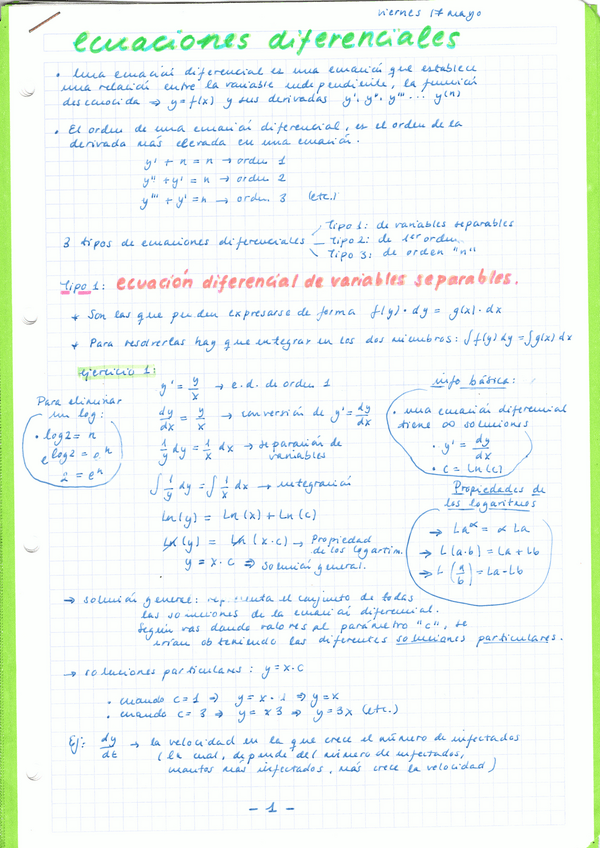 viernes 17 mayo
ecuaciones diferenciales
• Una ecuación diferencial es una ecuación que establece
una relación entre la variable independiente, la función
desconocida ⇒ y = f(x) y sus derivadas y', y'', y''' ... y(n)
• El orden de una ecuación diferencial, es el orden de la
derivada más elevada en una ecuación.
y' + n = n → orden 1
y'' + y' = n → orden 2
y''' + y' = n → orden 3 (etc.)
3 tipos de ecuaciones diferenciales
Tipo 1: de variables separables
Tipo 2: de 1er orden
Tipo 3: de orden "n"
Tipo 1: ecuación diferencial de variables separables.
* Son las que pueden expresarse de forma f(y) · dy = g(x) · dx
* Para resolverlas hay que integrar en los dos miembros: ∫f(y) dy = ∫g(x) dx
ejercicio 1:
y' = y/x → e.d. de orden 1
dy/dx = y/x → conversión de y' = dy/dx
1/y dy = 1/x dx → separación de
variables
∫ 1/y dy = ∫ 1/x dx → integración
Ln(y) = Ln(x) + Ln(c)
Ln(y) = Ln(x·c) → Propiedad
de los logartim.
y = x·c ⇒ solución general.
Para eliminar
un log:
• log2 = n
e^log2 = e^n
2 = e^n
info básica:
• una ecuación diferencial
tiene ∞ soluciones
• y' = dy/dx
• c = Ln(c)
Propiedades de
los logaritmos
→ La^α = α La
→ L(a·b) = La + Lb
→ L(a/b) = La - Lb
→ solución general: representa el conjunto de todas
las soluciones de la ecuación diferencial.
Según vas dando valores al parámetro "c", se
irían obteniendo las diferentes soluciones particulares.
→ soluciones particulares: y = x·c
• cuando c = 1 ⇒ y = x·1 ⇒ y = x
• cuando c = 3 ⇒ y = x3 ⇒ y = 3x (etc.)
Ej: dy/dt → la velocidad en la que crece el número de infectados
(la cual, depende del número de infectados,
cuantos más infectados, más crece la velocidad)
- 1 -